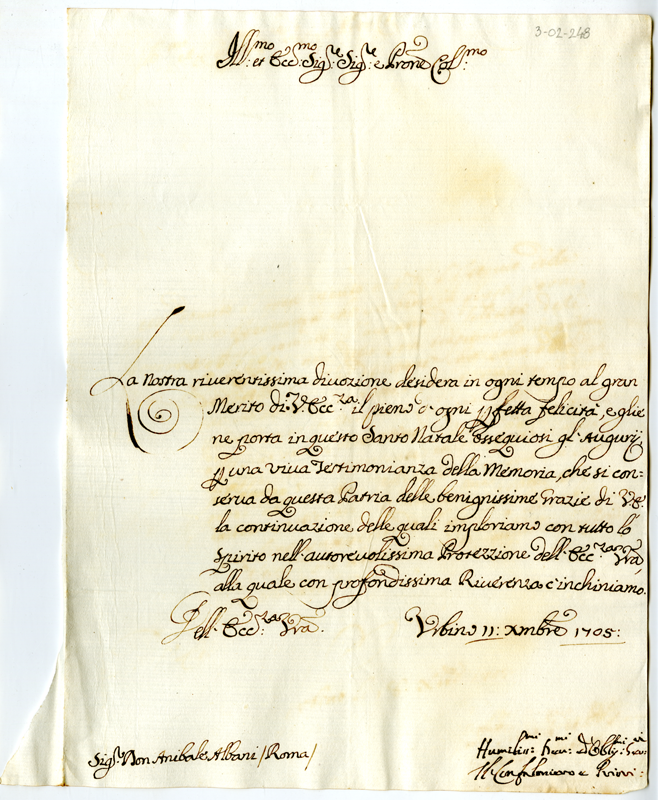 3-02-248
Ill:mo et Ecc:mo Sig:re Sig:re e Prōne Col:mo
La nostra riverentissima divozione desidera in ogni tempo al gran
Merito di V. Ecc:za il pieno d'ogni pfetta felicità, e glie
ne porta in questo Santo Natale ossequiosi gl'Augurij
p una viva Testimonianza della Memoria, che si con=
serva da questa Patria delle benignissime Grazie di V.E.
la continuazione delle quali imploriamo con tutto lo
Spirito nell'autorevolissima Protezzione dell'Ecc:za Vrā,
alla quale con profondissima Riverenza c'inchiniamo.
Dell'Ecc:za Vrā.
Urbino 11: Xmbre 1705:
Sig:r Don Anibale Albani /Roma/
Humiliss:mi Dev:mi ed Obblig:mi Ser:ri
Il Confaloniero e Priori